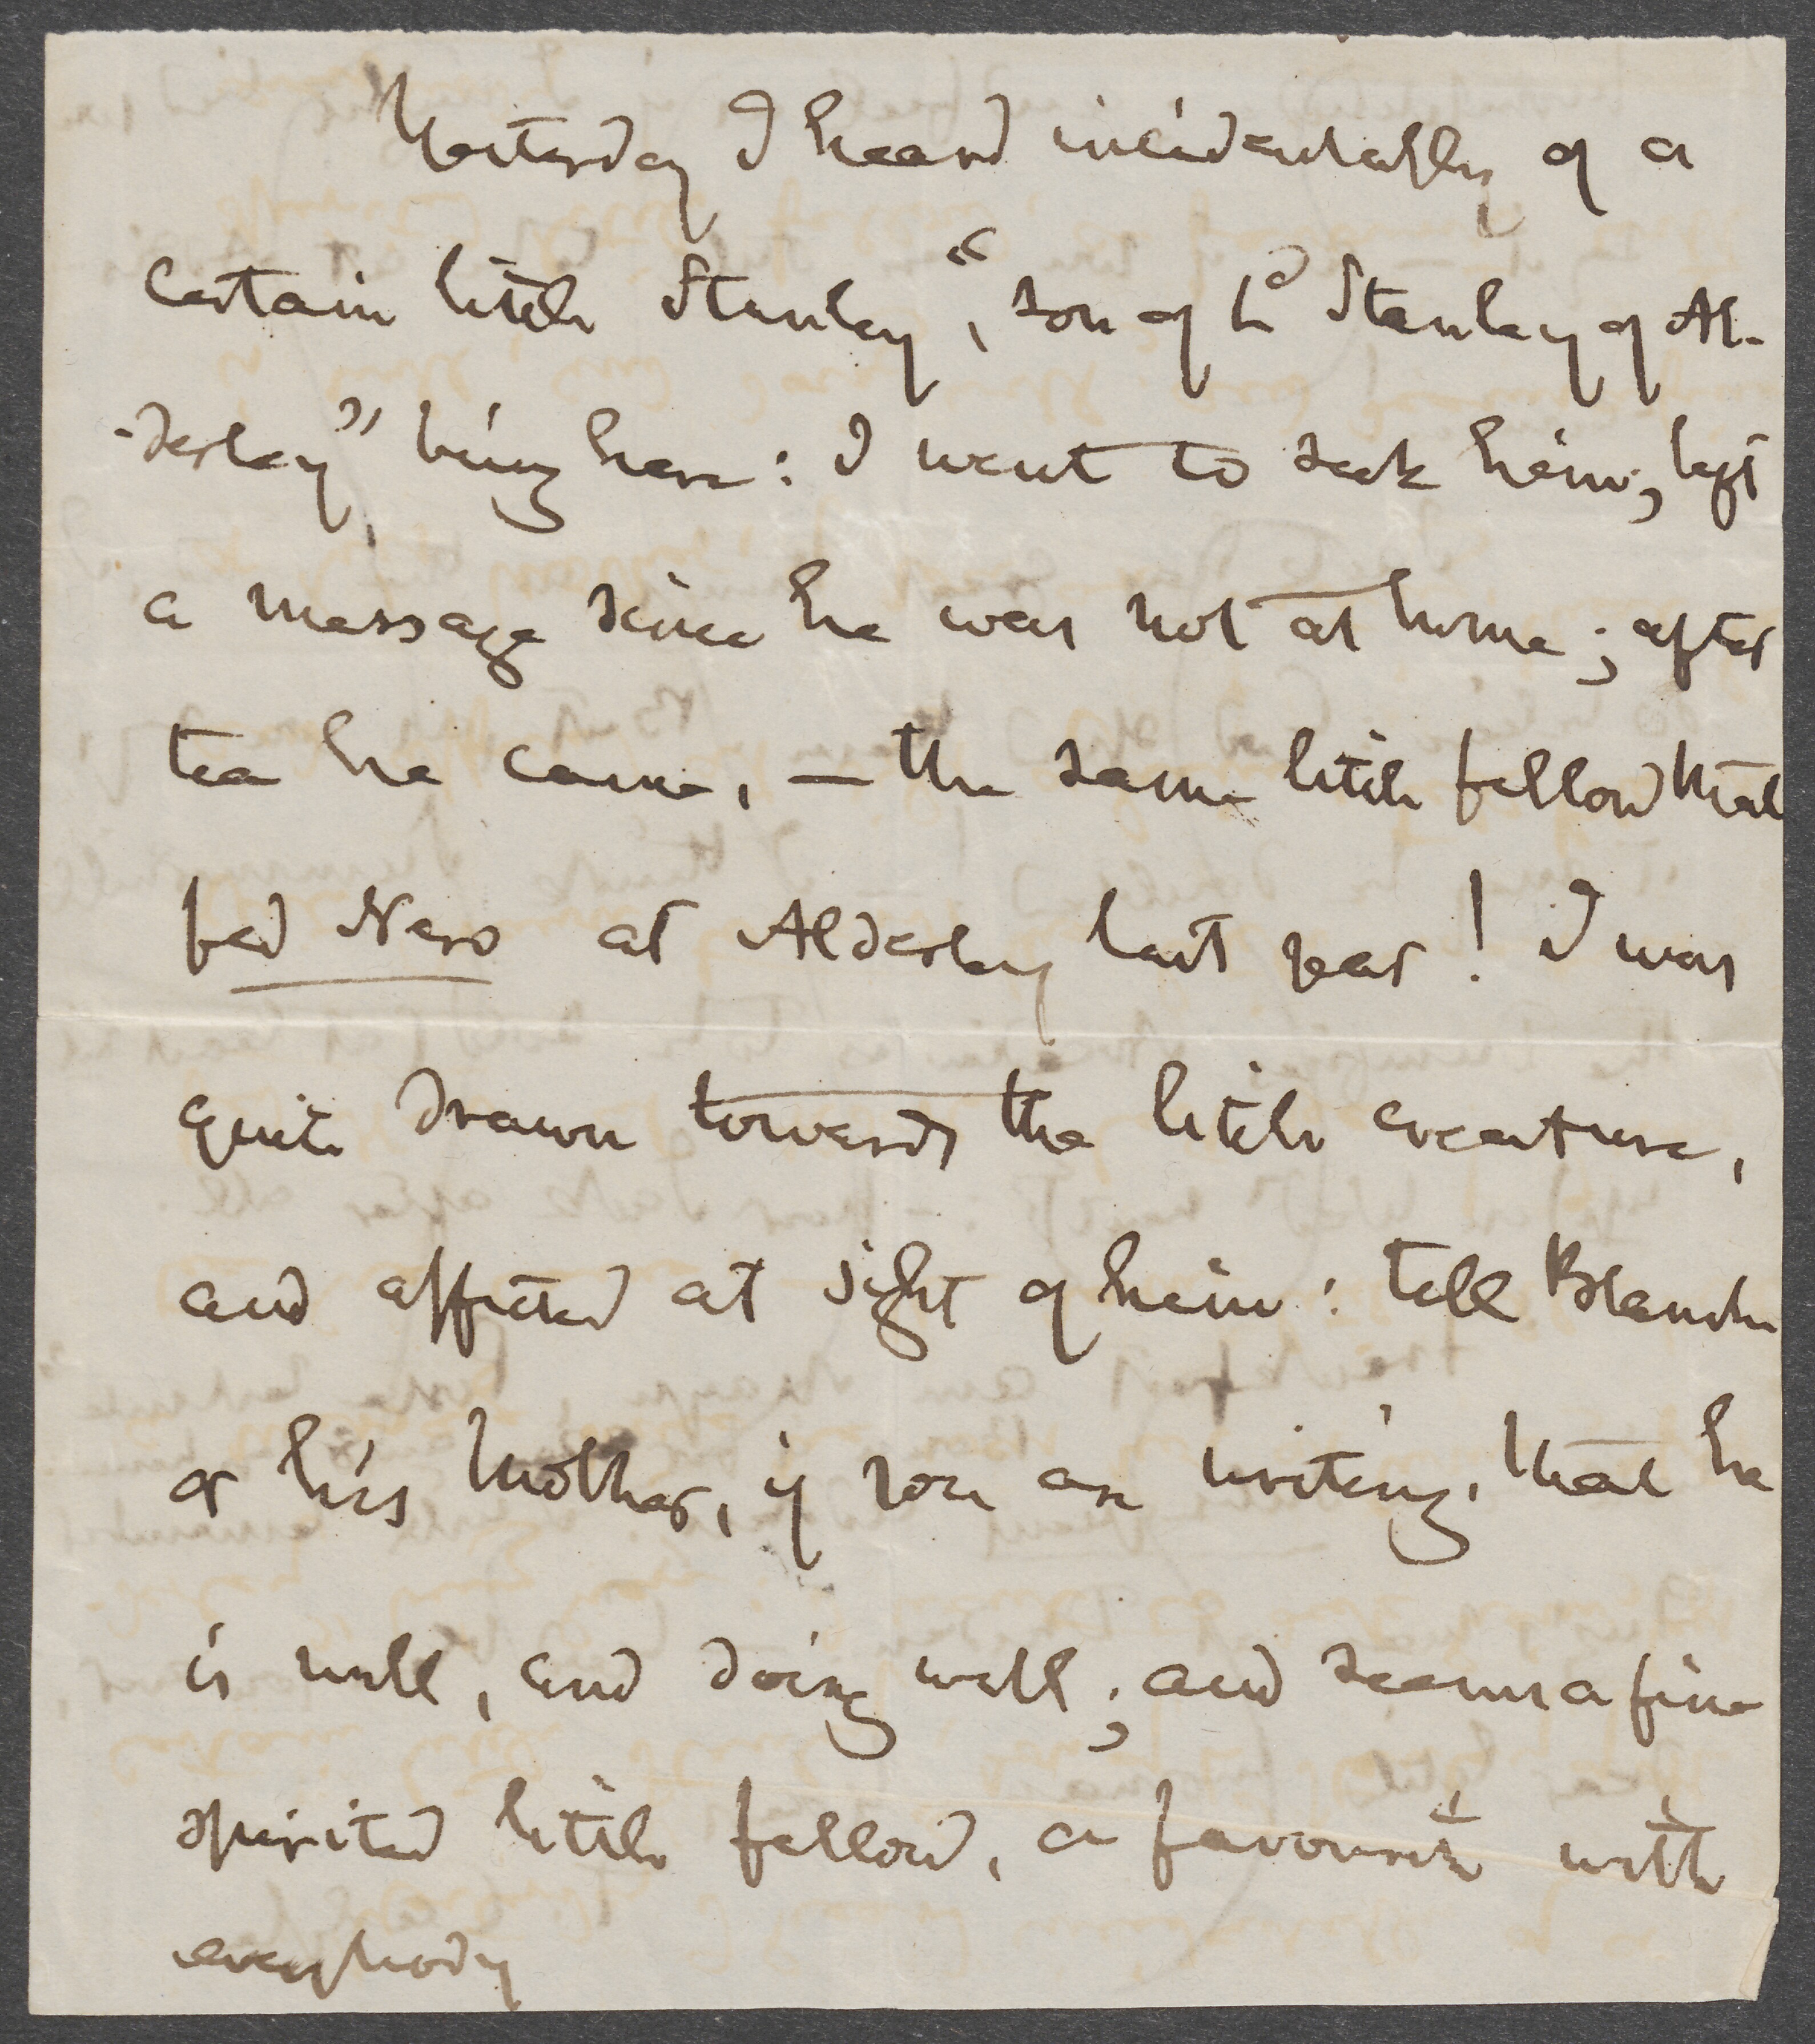 Yesterday I heard incidentally of a
certain little Stanley, "son of Ld Stanley of Al-
-derley" being here: I went to seek him; left
a message since he was not at home; after
tea he came, — the same little fellow that
fed Nero at Alderley last year! I was
quite drawn towards the little creature,
and affected at sight of him: tell Blanche
or his Mother, if you are writing, that he
is well, and doing well; and seems a fine
spirited little fellow, a favourite with
everybody